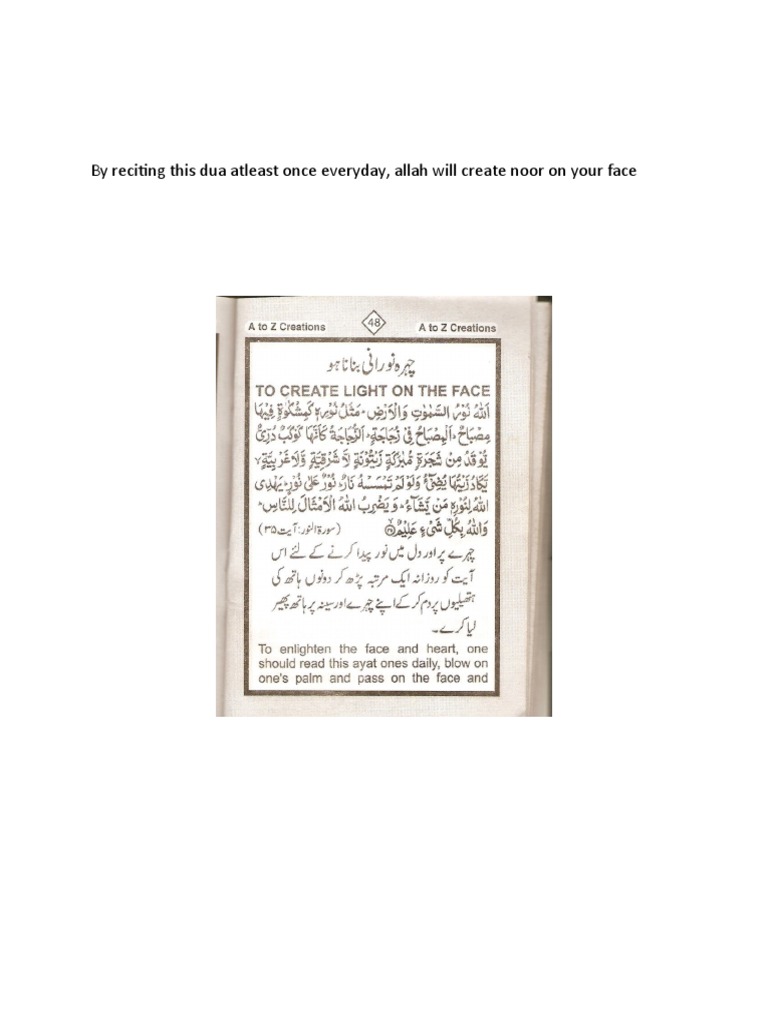 By reciting this dua atleast once everyday, allah will create noor on your face
A to Z Creations 48 A to Z Creations
چہرہ نورانی بنانا ہو
TO CREATE LIGHT ON THE FACE
اَللّٰهُ نُوْرُ السَّمٰوٰتِ وَالْاَرْضِ ؕ مَثَلُ نُوْرِهٖ كَمِشْكٰوةٍ فِيْهَا
مِصْبَاحٌ ؕ اَلْمِصْبَاحُ فِيْ زُجَاجَةٍ ؕ اَلزُّجَاجَةُ كَاَنَّهَا كَوْكَبٌ دُرِّيٌّ
يُّوْقَدُ مِنْ شَجَرَةٍ مُّبٰرَكَةٍ زَيْتُوْنَةٍ لَّا شَرْقِيَّةٍ وَّلَا غَرْبِيَّةٍ ۙ
يَّكَادُ زَيْتُهَا يُضِيْٓءُ وَلَوْ لَمْ تَمْسَسْهُ نَارٌ ؕ نُوْرٌ عَلٰى نُوْرٍ ؕ يَهْدِى
اللّٰهُ لِنُوْرِهٖ مَنْ يَّشَآءُ ؕ وَيَضْرِبُ اللّٰهُ الْاَمْثَالَ لِلنَّاسِ ؕ
وَاللّٰهُ بِكُلِّ شَيْءٍ عَلِيْمٌ (سورۃ النور: آیت ۳۵)
چہرے پر اور دل میں نور پیدا کرنے کے لئے اس
آیت کو روزانہ ایک مرتبہ پڑھ کر دونوں ہاتھ کی
ہتھیلیوں پر دم کر کے اپنے چہرے اور سینہ پر ہاتھ پھیر
لیا کرے۔
To enlighten the face and heart, one
should read this ayat ones daily, blow on
one's palm and pass on the face and